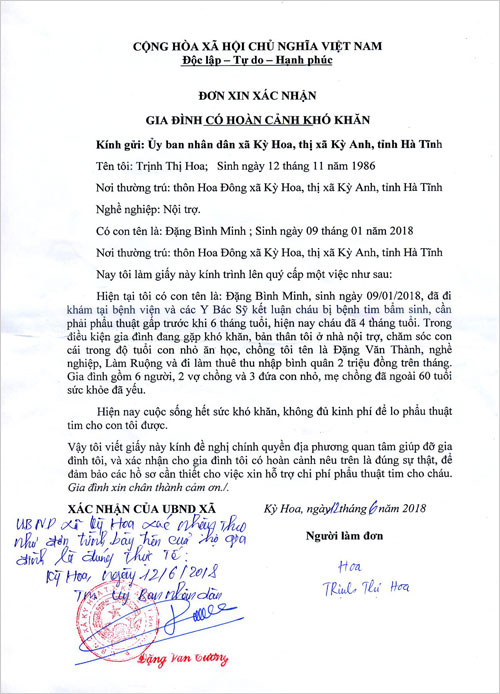 CỘNG HÒA XÃ HỘI CHỦ NGHĨA VIỆT NAM
Độc lập – Tự do – Hạnh phúc
ĐƠN XIN XÁC NHẬN
GIA ĐÌNH CÓ HOÀN CẢNH KHÓ KHĂN
Kính gửi: Ủy ban nhân dân xã Kỳ Hoa, thị xã Kỳ Anh, tỉnh Hà Tĩnh
Tên tôi: Trịnh Thị Hoa; Sinh ngày 12 tháng 11 năm 1986
Nơi thường trú: thôn Hoa Đông xã Kỳ Hoa, thị xã Kỳ Anh, tỉnh Hà Tĩnh
Nghề nghiệp: Nội trợ.
Có con tên là: Đặng Bình Minh ; Sinh ngày 09 tháng 01 năm 2018
Nơi thường trú: thôn Hoa Đông xã Kỳ Hoa, thị xã Kỳ Anh, tỉnh Hà Tĩnh
Nay tôi làm giấy này kính trình lên quý cấp một việc như sau:
Hiện tại tôi có con tên là: Đặng Bình Minh, sinh ngày 09/01/2018, đã đi
khám tại bệnh viện và các Y Bác Sỹ kết luận cháu bị bệnh tim bẩm sinh, cần
phải phẩu thuật gấp trước khi 6 tháng tuổi, hiện nay cháu đã 4 tháng tuổi. Trong
điều kiện gia đình đang gặp khó khăn, bản thân tôi ở nhà nội trợ, chăm sóc con
cái trong độ tuổi con nhỏ ăn học, chồng tôi tên là Đặng Văn Thành, nghề
nghiệp, Làm Ruộng và đi làm thuê thu nhập bình quân 2 triệu đồng trên tháng.
Gia đình gồm 6 người, 2 vợ chồng và 3 đứa con nhỏ, mẹ chồng đã ngoài 60 tuổi
sức khỏe đã yếu.
Hiện nay cuộc sống hết sức khó khăn, không đủ kinh phí để lo phẩu thuật
tim cho con tôi được.
Vậy tôi viết giấy này kính đề nghị chính quyền địa phương quan tâm giúp đỡ gia
đình tôi, và xác nhận cho gia đình tôi có hoàn cảnh nêu trên là đúng sự thật, để
đảm bảo các hồ sơ cần thiết cho việc xin hỗ trợ chi phí phẩu thuật tim cho cháu.
Gia đình xin chân thành cảm ơn./.
XÁC NHẬN CỦA UBND XÃ
Kỳ Hoa, ngày 12 tháng 6 năm 2018
Người làm đơn
UBND xã Kỳ Hoa xác nhận theo
như đơn trình bày trên của gia
đình là đúng thực tế.
Kỳ Hoa, ngày 12/6/2018
TM Uỷ Ban nhân dân
Hoa
Trịnh Thị Hoa
Đặng Văn Cương